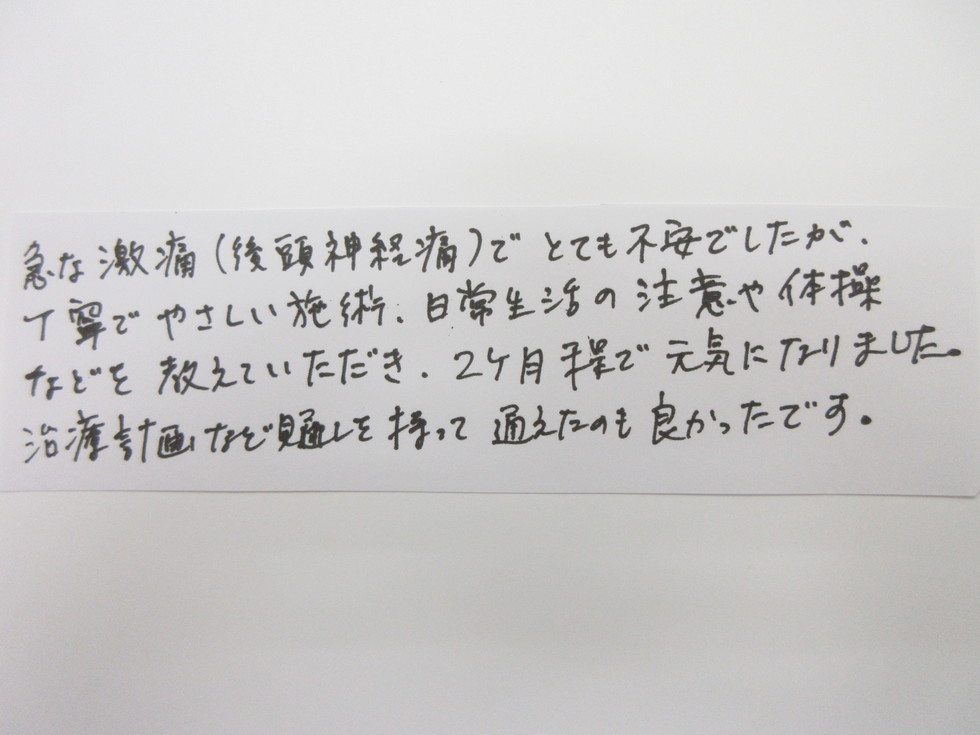 急な激痛(後頭神経痛)でとても不安でしたが、
丁寧でやさしい施術、日常生活の注意や体操
などを教えていただき、2ケ月程で元気になりました。
治療計画など見通しを持って通えたのも良かったです。